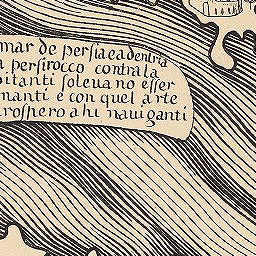 mar de persia e a dentria
a per sirocco contra la
bitanti soleva no esser
nanti e con quel arte
rospero a hi naviganti